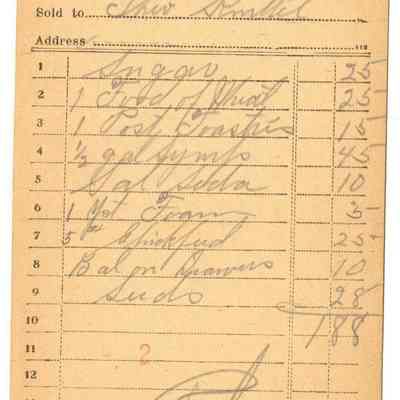 Sold to
Address
1 Sugar 25
2 1 Food of Wheat 25
3 1 Post Toasties 15
4 1/2 gal Syrup 45
5 Sal Soda 10
6 1 Yst Foam 5
7 5# Chickfeed 25
8 Bal on Drawers 10
9 Seeds 28
10 188
11 2
12